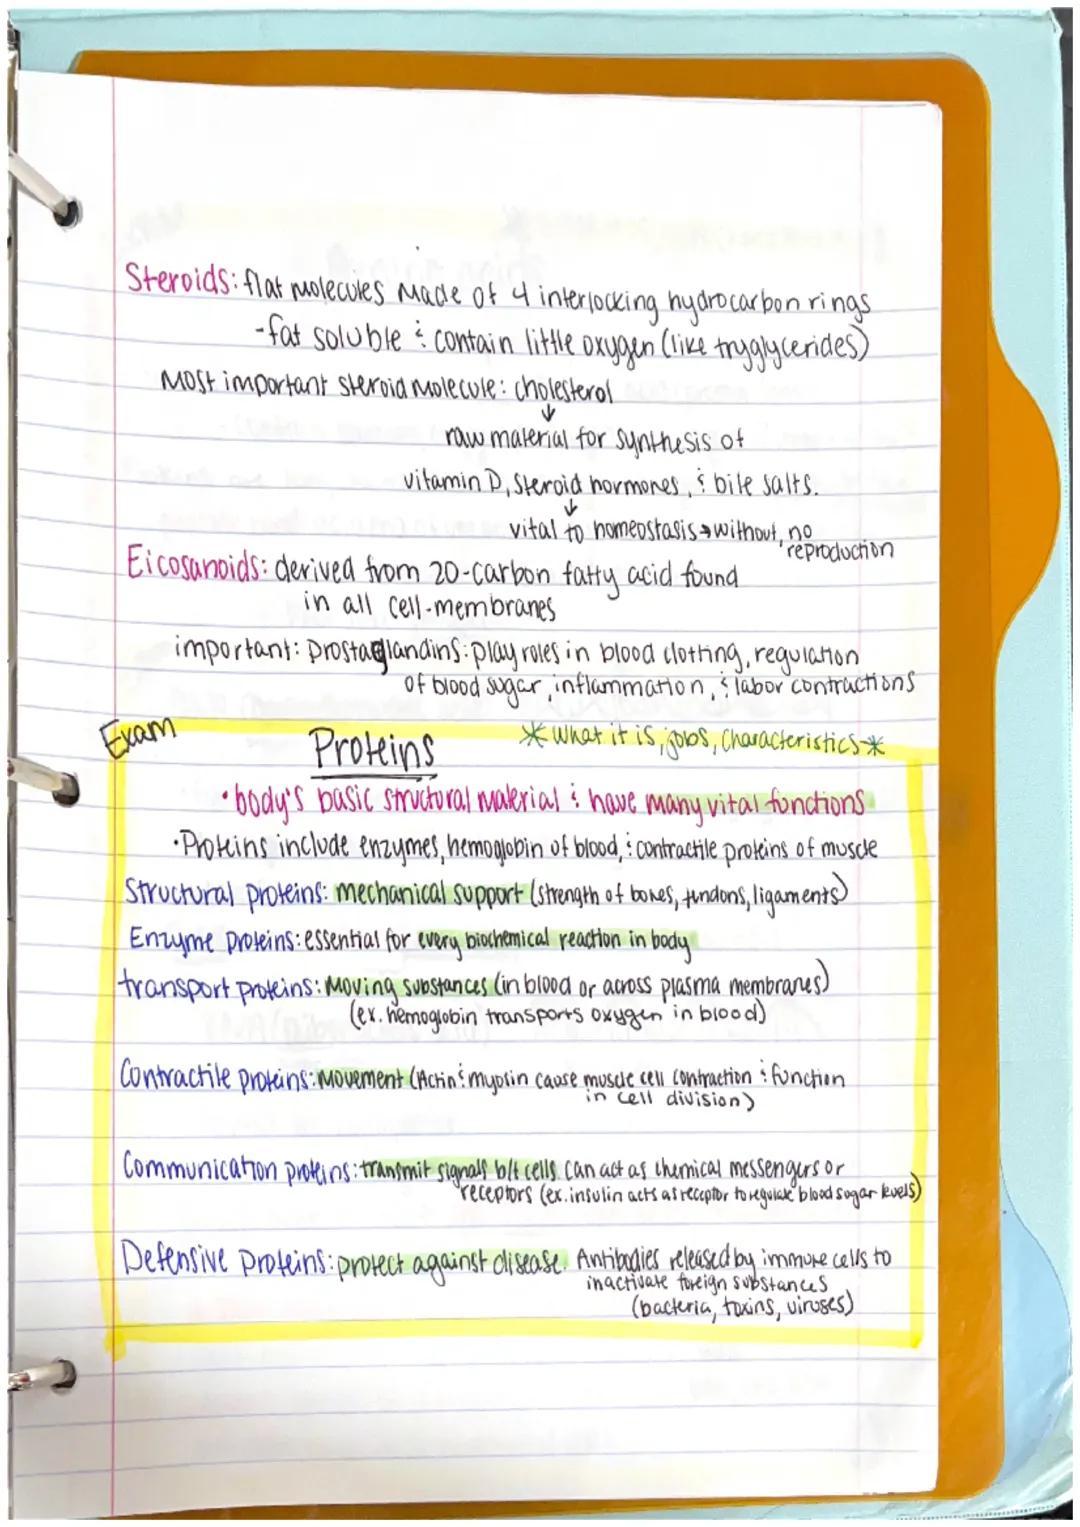 Steroids: flat molecules made of 4 interlocking hydrocarbon rings
-fat soluble & contain little oxygen (like tryglycerides)
Most important steroid molecule: cholesterol
↓
raw material for synthesis of
vitamin D, steroid hormones, & bile salts.
↓
vital to homeostasis → without, no
reproduction
Eicosanoids: derived from 20-carbon fatty acid found
in all cell-membranes
important: Prostaglandins: play roles in blood clotting, regulation
of blood sugar, inflammation, & labor contractions
Exam
Proteins
* What it is, jobs, characteristics *
• body's basic structural material & have many vital functions
• Proteins include enzymes, hemoglobin of blood, & contractile proteins of muscle
Structural proteins: mechanical support (strength of bones, tundons, ligaments)
Enzyme proteins: essential for every biochemical reaction in body
transport proteins: Moving substances (in blood or across plasma membranes)
(ex. hemoglobin transports oxygen in blood)
Contractile proteins: Movement (Actin & myosin cause muscle cell contraction & function
in cell division)
Communication proteins: transmit signals b/t cells. Can act as chemical messengers or
receptors (ex. insulin acts as receptor to regulate blood sugar levels)
Defensive Proteins: protect against disease. Antibodies released by immune cells to
inactivate foreign substances
(bacteria, toxins, viruses)